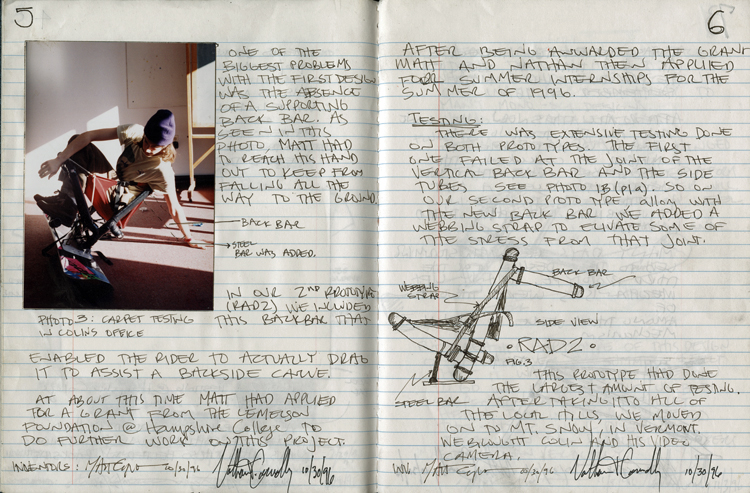 5
ONE OF THE
BIGGEST PROBLEMS
WITH THE FIRST DESIGN
WAS THE ABSENCE
OF A SUPPORTING
BACK BAR. AS
SEEN IN THIS
PHOTO, MATT HAD
TO REACH HIS HAND
OUT TO KEEP FROM
FALLING ALL THE
WAY TO THE GROUND.
BACK BAR
STEEL
BAR WAS ADDED.
IN OUR 2ND PROTOTYPE
(RAD2) WE INCLUDED
THIS BACKBAR THAT
PHOTO 3: CARPET TESTING
IN COLINS OFFICE
ENABLED THE RIDER TO ACTUALLY DRAG
IT TO ASSIST A BACKSIDE CARVE.
AT ABOUT THIS TIME MATT HAD APPLIED
FOR A GRANT FROM THE LEMELSON
FOUNDATION @ Hampshire College TO
DO FURTHER WORK ON THIS PROJECT.
INVENTORS: 10/30/96 Nathan Connolly 10/30/96
6
AFTER BEING AWARDED THE GRANT
MATT AND NATHAN THEN APPLIED
FOR SUMMER INTERNSHIPS FOR THE
SUMMER OF 1996.
TESTING:
THERE WAS EXTENSIVE TESTING DONE
ON BOTH PROTOTYPES. THE FIRST
ONE FAILED AT THE JOINT OF THE
VERTICAL BACK BAR AND THE SIDE
TUBES SEE PHOTO 1B (P1a). SO ON
OUR SECOND PROTOTYPE, along WITH
THE NEW BACK BAR WE ADDED A
WEBBING STRAP TO ELIVATE SOME OF
THE STRESS FROM THAT JOINT.
BACK BAR
WEBBING
STRAP
SIDE VIEW
• RAD2 •
FIG.3
STEEL BAR
THIS PROTOTYPE HAD DONE
THE LARGEST AMOUNT OF TESTING.
AFTER TAKING IT TO ALL OF
THE LOCAL HILLS, WE MOVED
ON TO MT. SNOW, IN VERMONT.
WE BROUGHT COLIN AND HIS VIDEO
CAMERA.
10/30/96 Nathan Connolly 10/30/96